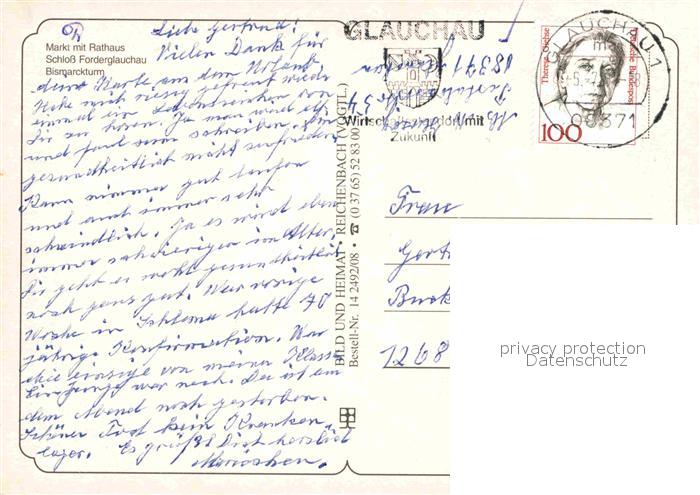 Markt mit Rathaus
Schloß Forderglauchau
Bismarckturm
Liebe Gertrud!
Vielen Dank für
deine Karte aus dem Urlaub.
Habe mich riesig gefreut wieder
einmal ein Lebenszeichen von
Dir zu hören. Ja man wird alt
und faul zum schreiben. Bin
gesundheitlich nicht zufrieden.
Kann nimmer gut laufen
und auch immer sehr
schwindlich. Ja es wird eben
immer schwieriger im Alter.
Dir geht es wohl gesundheitlich
noch ganz gut. War vorige
Woche in Schlema hatte 70
jährige Konfirmation. War
die einzige von meiner Klasse
Ein Junge war noch. Der ist am
dem Abend noch gestorben.
Schöner Tod kein Kranken-
lager. Es grüßt Dich herzlich
BILD UND HEIMAT · REICHENBACH (VOGTL.)
Bestell-Nr. 14 2492/08 · ☎ (0 37 65) 52 83 00
GLAUCHAU
Wirtschaftsstandort mit
Zukunft
08371
GLAUCHAU 1
08371
Therese Giehse
Deutsche Bundespost
100
Frau
1268
privacy protection
Datenschutz